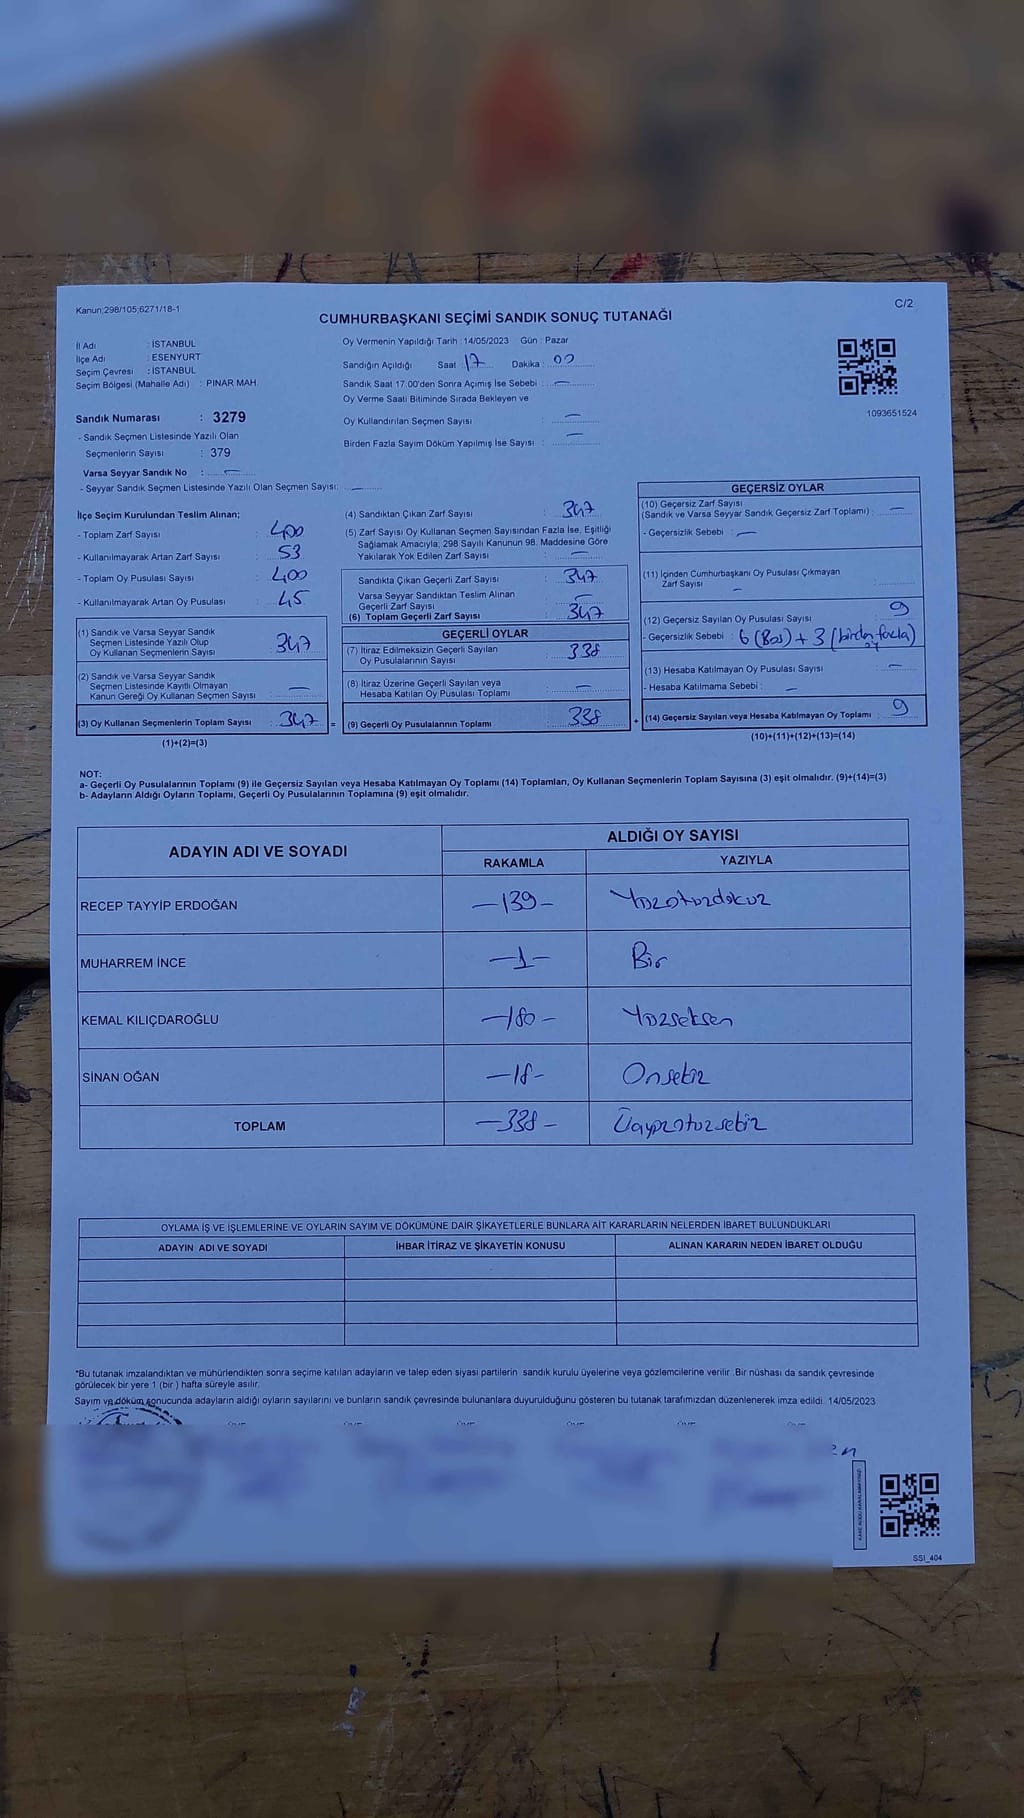 Kanun:298/105;6271/18-1
C/2
CUMHURBAŞKANI SEÇİMİ SANDIK SONUÇ TUTANAĞI
İl Adı : İSTANBUL
İlçe Adı : ESENYURT
Seçim Çevresi : İSTANBUL
Seçim Bölgesi (Mahalle Adı) : PINAR MAH.
Sandık Numarası : 3279
- Sandık Seçmen Listesinde Yazılı Olan
Seçmenlerin Sayısı : 379
Varsa Seyyar Sandık No : —
- Seyyar Sandık Seçmen Listesinde Yazılı Olan Seçmen Sayısı: —
Oy Vermenin Yapıldığı Tarih :14/05/2023 Gün : Pazar
Sandığın Açıldığı Saat 17 Dakika : 00
Sandık Saat 17.00'den Sonra Açımış İse Sebebi : —
Oy Verme Saati Bitiminde Sırada Bekleyen ve
Oy Kullandırılan Seçmen Sayısı : —
Birden Fazla Sayım Döküm Yapılmış İse Sayısı : —
1093651524
İlçe Seçim Kurulundan Teslim Alınan;
- Toplam Zarf Sayısı : 400
- Kullanılmayarak Artan Zarf Sayısı : 53
- Toplam Oy Pusulası Sayısı : 400
- Kullanılmayarak Artan Oy Pusulası : 45
(1) Sandık ve Varsa Seyyar Sandık
Seçmen Listesinde Yazılı Olup
Oy Kullanan Seçmenlerin Sayısı : 347
(2) Sandık ve Varsa Seyyar Sandık
Seçmen Listesinde Kayıtlı Olmayan
Kanun Gereği Oy Kullanan Seçmen Sayısı : —
(3) Oy Kullanan Seçmenlerin Toplam Sayısı : 347 =
(1)+(2)=(3)
(4) Sandıktan Çıkan Zarf Sayısı : 347
(5) Zarf Sayısı Oy Kullanan Seçmen Sayısından Fazla İse, Eşitliği
Sağlamak Amacıyla, 298 Sayılı Kanunun 98. Maddesine Göre
Yakılarak Yok Edilen Zarf Sayısı : —
Sandıkta Çıkan Geçerli Zarf Sayısı : 347
Varsa Seyyar Sandıktan Teslim Alınan
Geçerli Zarf Sayısı : —
(6) Toplam Geçerli Zarf Sayısı : 347
GEÇERLİ OYLAR
(7) İtiraz Edilmeksizin Geçerli Sayılan
Oy Pusulalarının Sayısı : 338
(8) İtiraz Üzerine Geçerli Sayılan veya
Hesaba Katılan Oy Pusulası Toplamı : —
(9) Geçerli Oy Pusulalarının Toplamı : 338 +
GEÇERSİZ OYLAR
(10) Geçersiz Zarf Sayısı
(Sandık ve Varsa Seyyar Sandık Geçersiz Zarf Toplamı) : —
- Geçersizlik Sebebi : —
(11) İçinden Cumhurbaşkanı Oy Pusulası Çıkmayan
Zarf Sayısı : —
(12) Geçersiz Sayılan Oy Pusulası Sayısı : 9
- Geçersizlik Sebebi : 6 (Boş) + 3 (birden fazla)
oy
(13) Hesaba Katılmayan Oy Pusulası Sayısı : —
- Hesaba Katılmama Sebebi : —
(14) Geçersiz Sayılan veya Hesaba Katılmayan Oy Toplamı : 9
(10)+(11)+(12)+(13)=(14)
NOT:
a- Geçerli Oy Pusulalarının Toplamı (9) ile Geçersiz Sayılan veya Hesaba Katılmayan Oy Toplamı (14) Toplamları, Oy Kullanan Seçmenlerin Toplam Sayısına (3) eşit olmalıdır. (9)+(14)=(3)
b- Adayların Aldığı Oyların Toplamı, Geçerli Oy Pusulalarının Toplamına (9) eşit olmalıdır.
ADAYIN ADI VE SOYADI
ALDIĞI OY SAYISI
RAKAMLA YAZIYLA
RECEP TAYYİP ERDOĞAN —139— Yüzotuzdokuz
MUHARREM İNCE —1— Bir
KEMAL KILIÇDAROĞLU —180— Yüzseksen
SİNAN OĞAN —18— Onsekiz
TOPLAM —338— Üçyüzotuzsekiz
OYLAMA İŞ VE İŞLEMLERİNE VE OYLARIN SAYIM VE DÖKÜMÜNE DAİR ŞİKAYETLERLE BUNLARA AİT KARARLARIN NELERDEN İBARET BULUNDUKLARI
ADAYIN ADI VE SOYADI İHBAR İTİRAZ VE ŞİKAYETİN KONUSU ALINAN KARARIN NEDEN İBARET OLDUĞU
*Bu tutanak imzalandıktan ve mühürlendikten sonra seçime katılan adayların ve talep eden siyasi partilerin sandık kurulu üyelerine veya gözlemcilerine verilir. Bir nüshası da sandık çevresinde
görülecek bir yere 1 (bir ) hafta süreyle asılır.
Sayım ve döküm sonucunda adayların aldığı oyların sayılarını ve bunların sandık çevresinde bulunanlara duyurulduğunu gösteren bu tutanak tarafımızdan düzenlenerek imza edildi. 14/05/2023
SSI_404